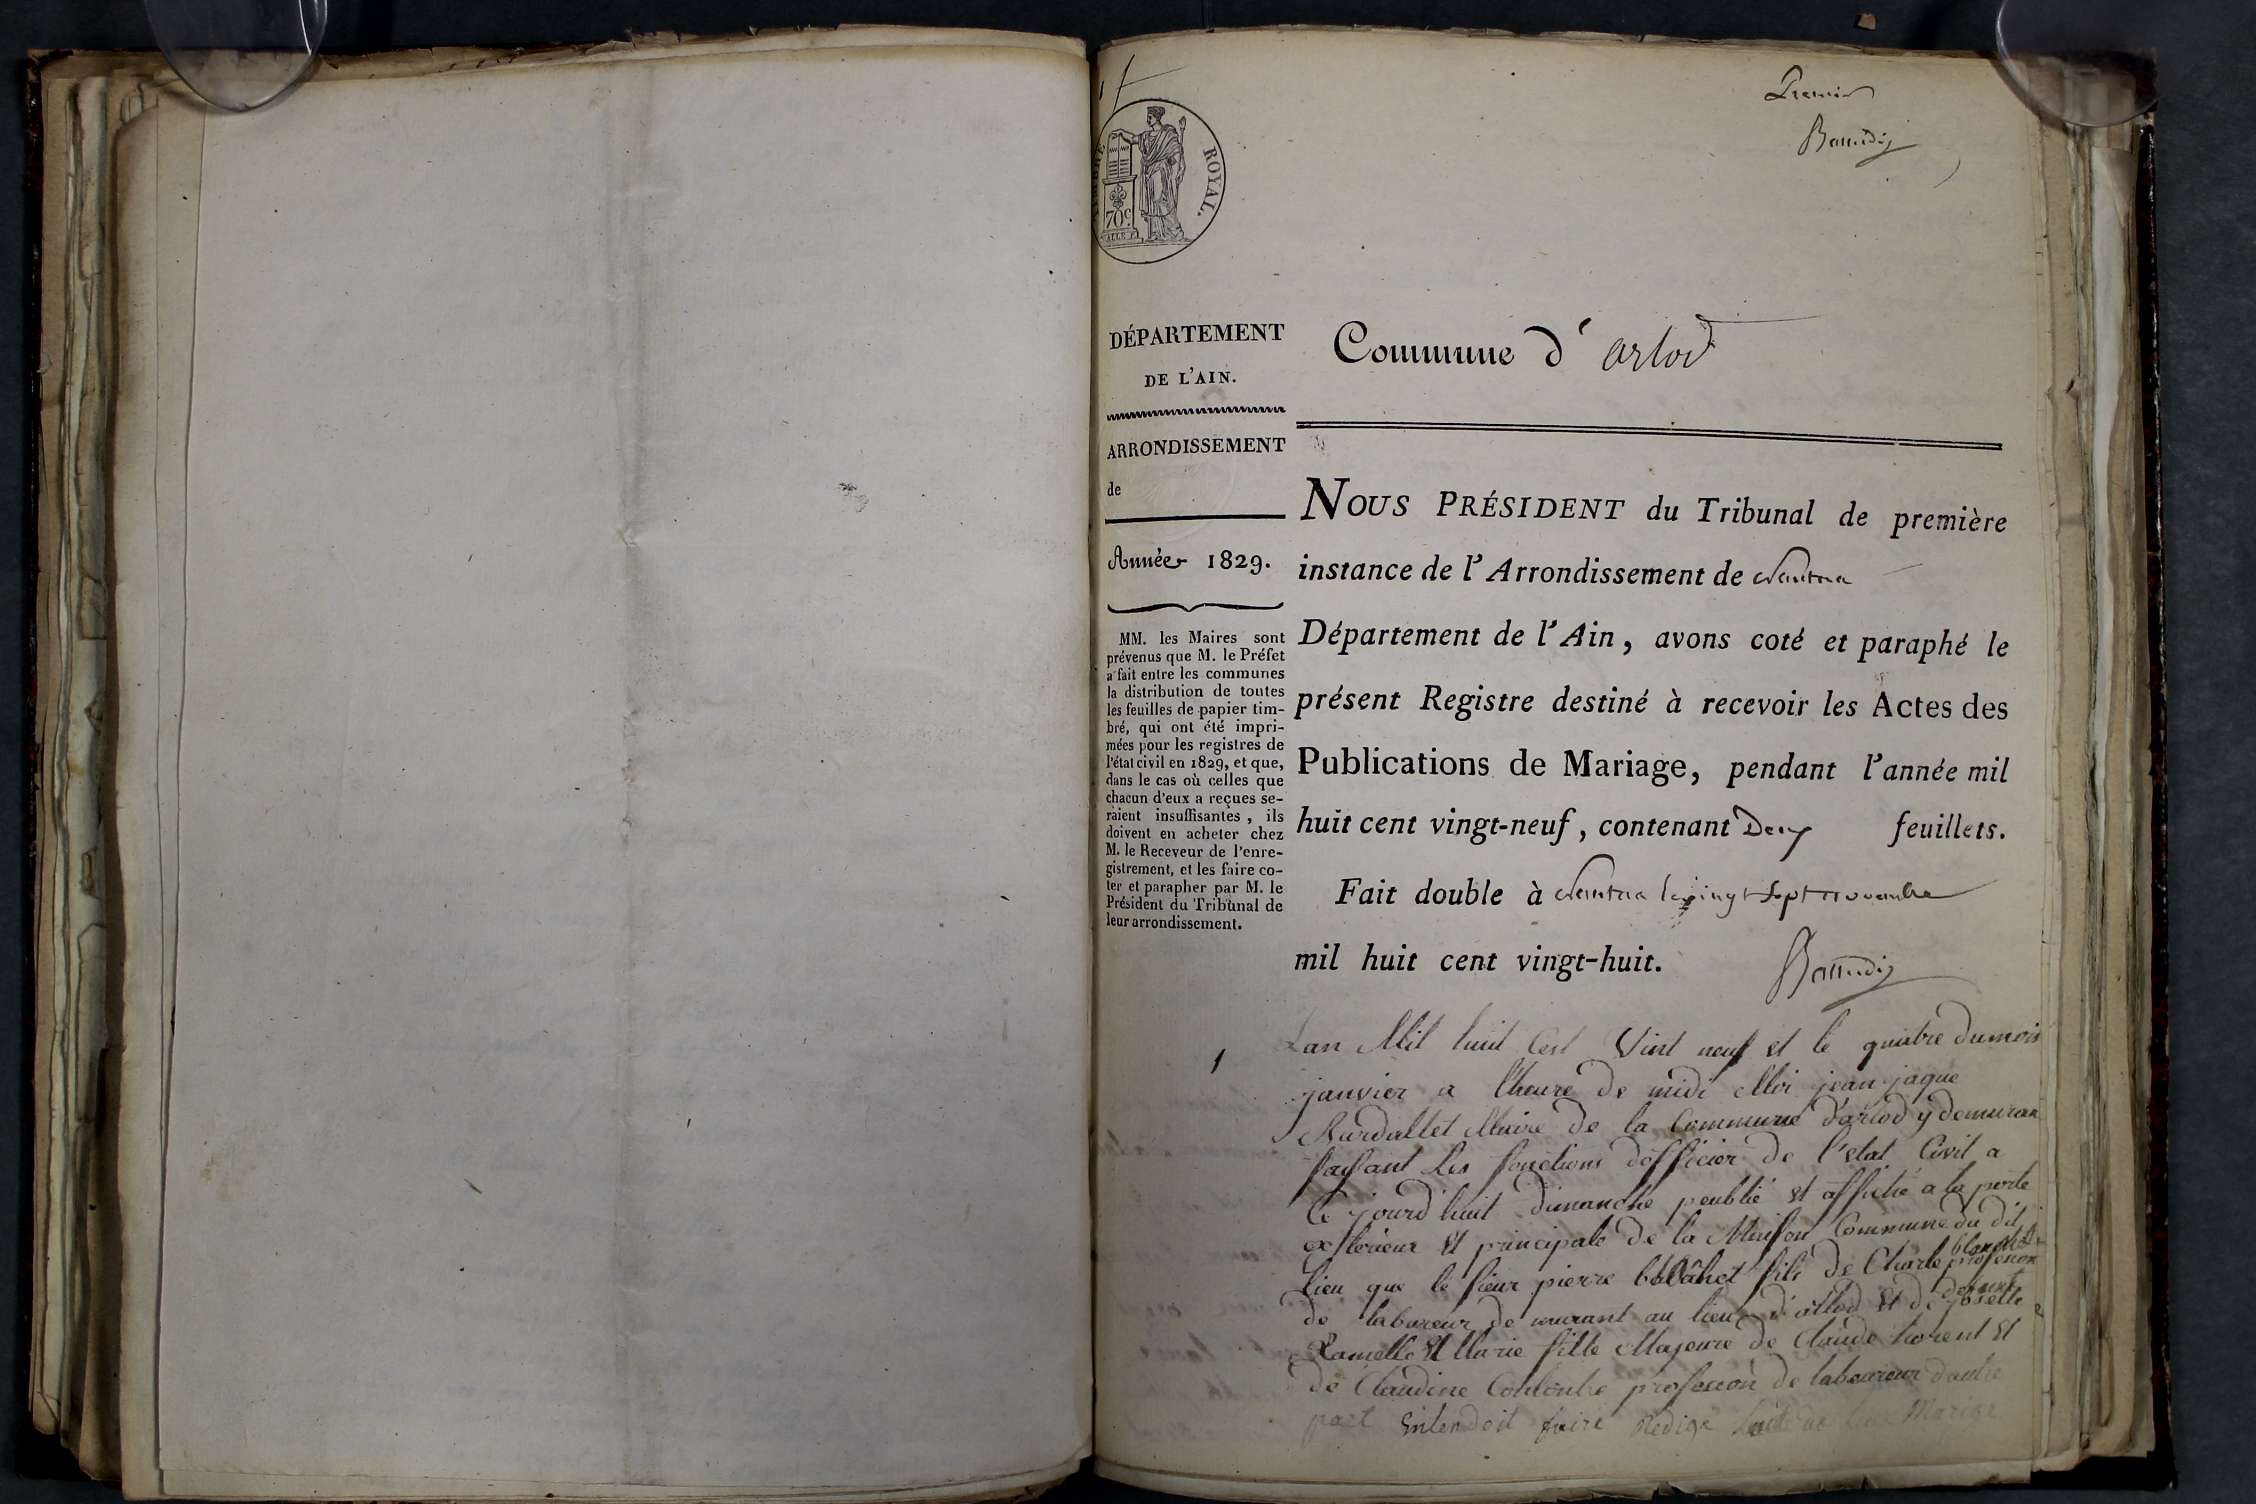 1
Premier
TIMBRE ROYAL.
70c
DÉPARTEMENT
DE L'AIN.
ARRONDISSEMENT
de
Année 1829.
MM. les Maires sont
prévenus que M. le Préfet
a fait entre les communes
la distribution de toutes
les feuilles de papier tim-
bré, qui ont été impri-
mées pour les registres de
l'état civil en 1829, et que,
dans le cas où celles que
chacun d'eux a reçues se-
raient insuffisantes, ils
doivent en acheter chez
M. le Receveur de l'enre-
gistrement, et les faire co-
ter et parapher par M. le
Président du Tribunal de
leur arrondissement.
Commune d'arlod
NOUS PRÉSIDENT du Tribunal de première
instance de l'Arrondissement de Nantua
Département de l'Ain, avons coté et paraphé le
présent Registre destiné à recevoir les Actes des
Publications de Mariage, pendant l'année mil
huit cent vingt-neuf, contenant Deux feuillets.
Fait double à Nantua le vingt sept novembre
mil huit cent vingt-huit.
1
Lan Mil huit Cest Vint neuf et le quatre du mois
janvier a l'heure de midi Moi jean jaque
Burdallet Maire de la Commune d'arlod y demuran
faisant les fonctions d'officier de l'etat Civil a
Ce jourd'huit dimanche peublié et affiché a la porte
exterieur et principale de la Maison Commune du dit
lieu que le sieur pierre blanchet fils de Charle blanchet profession
de laboureur demeurant au lieu d'arlod et de defunte josette
Ramelle et Marie fille Majeure de Claude et
de Claudine profession de laboureur d'autre
part Entendoit faire Redigé Mariage